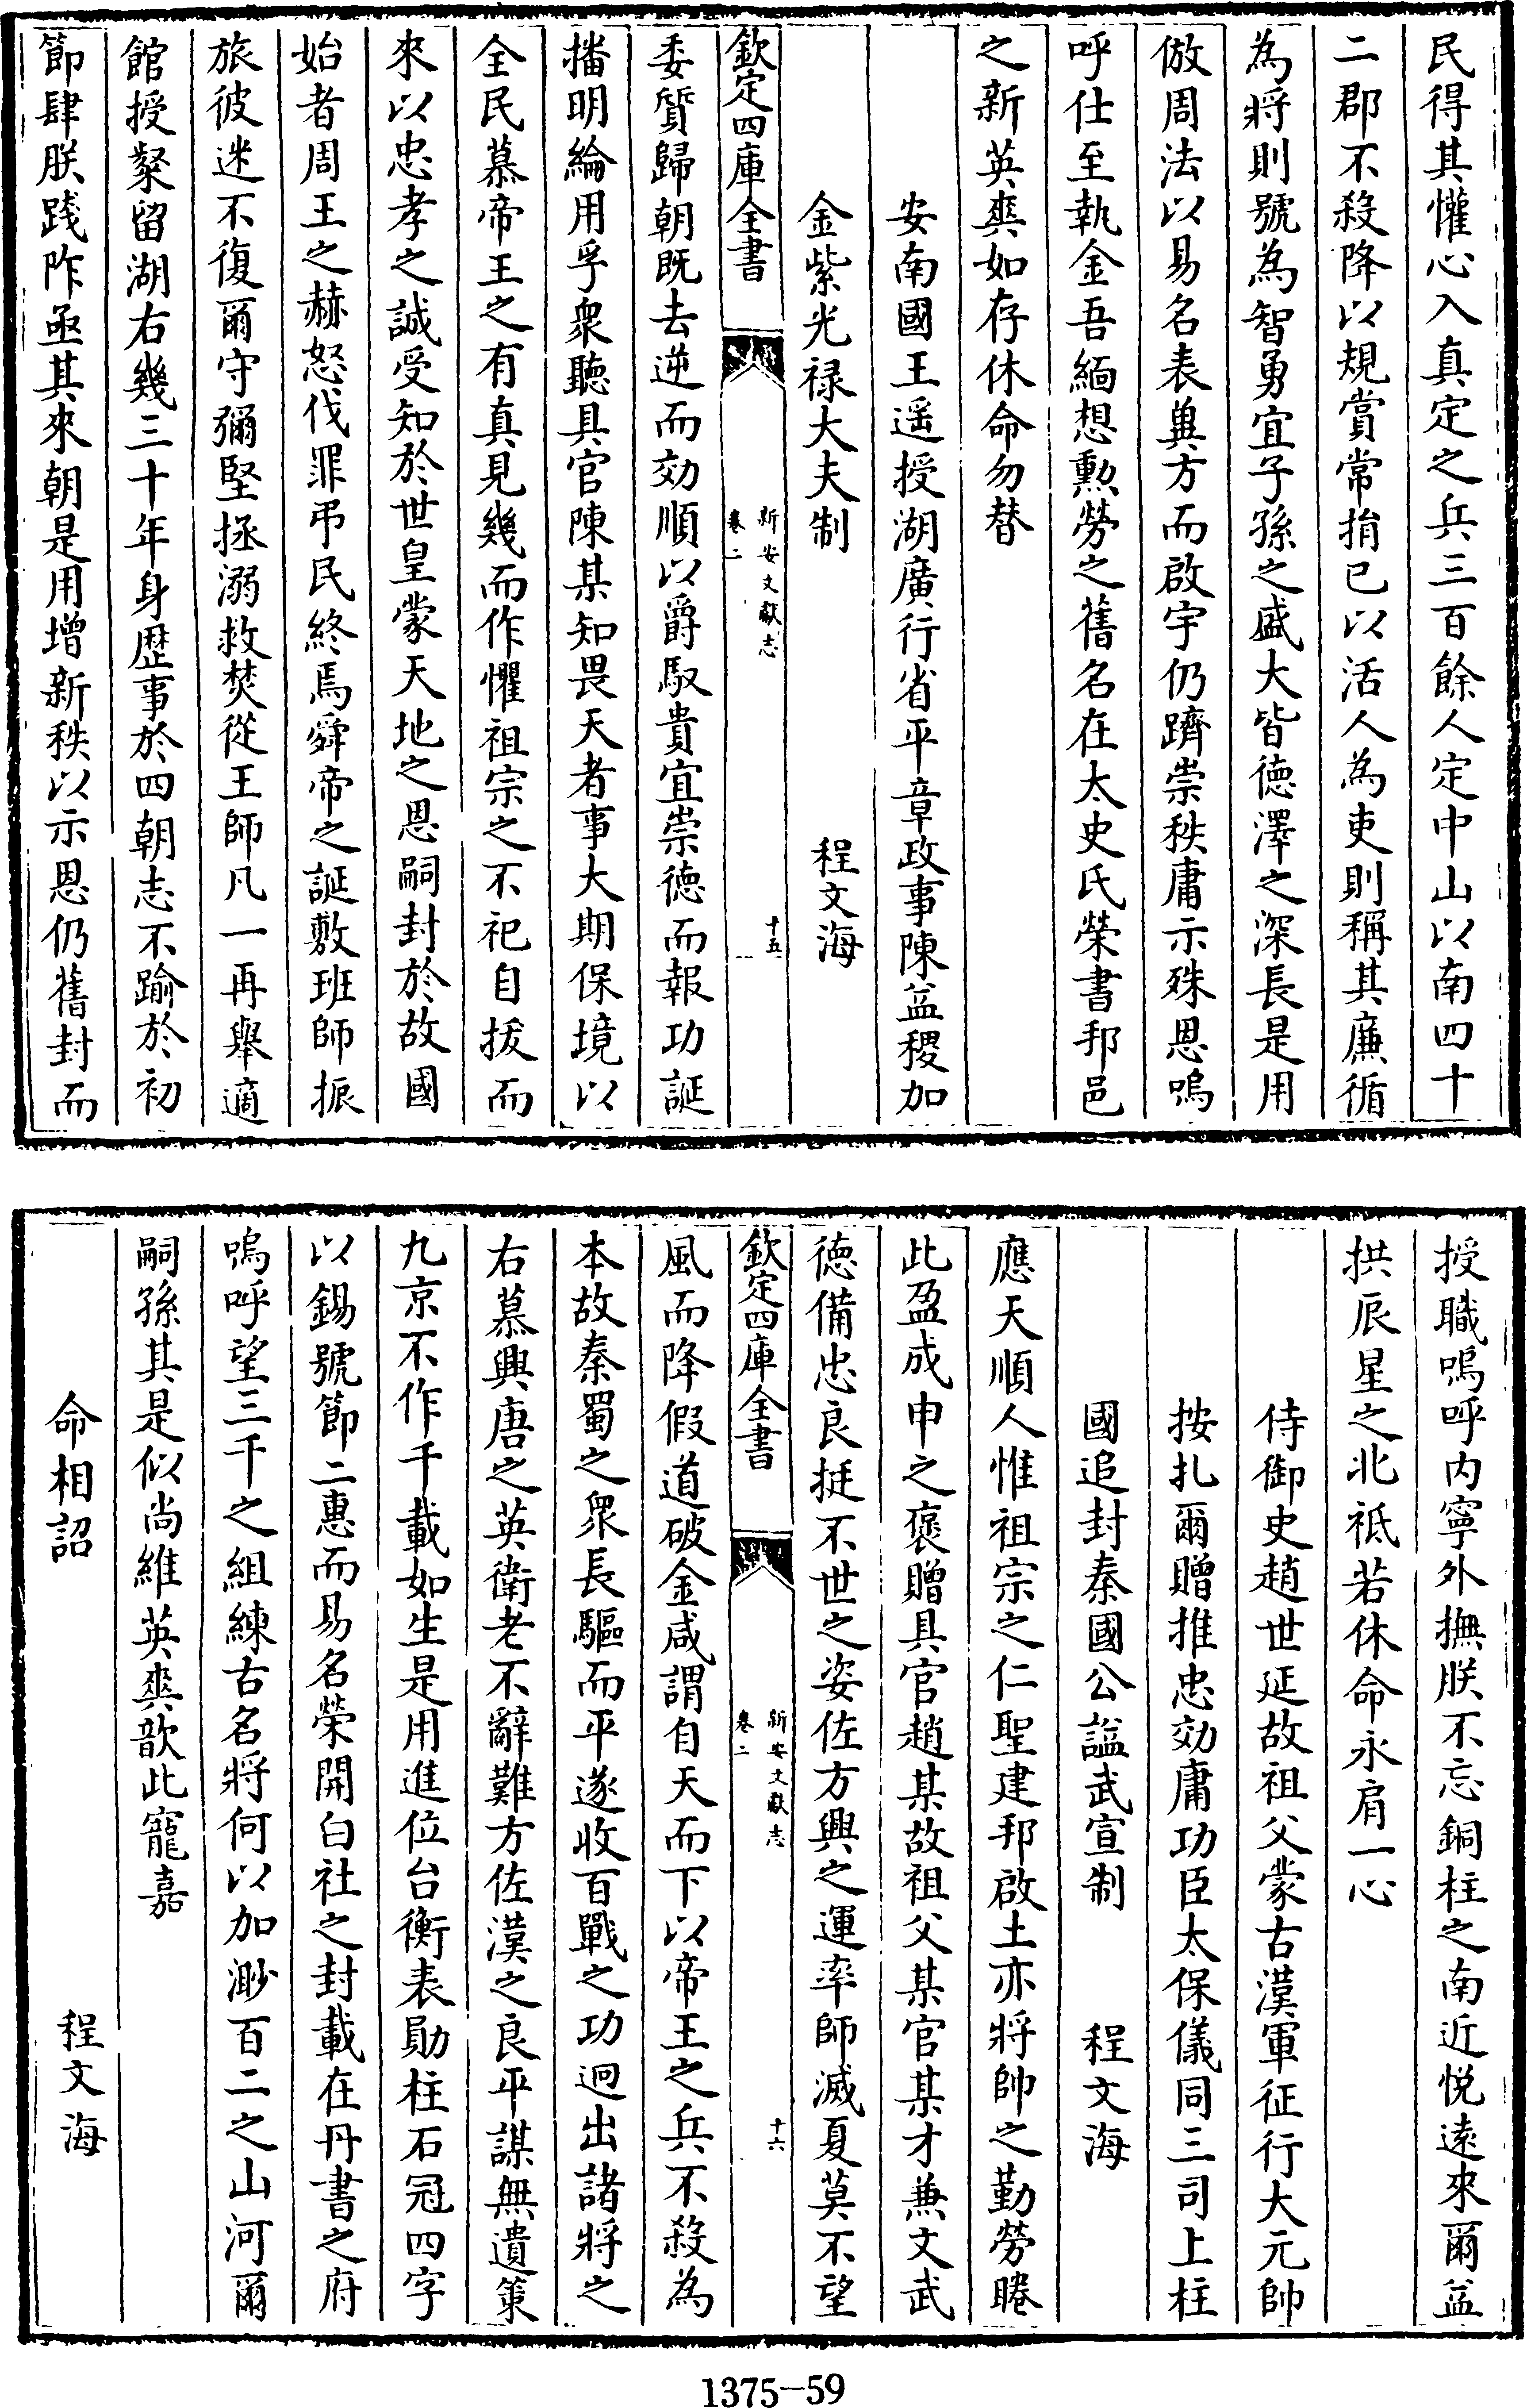 民得其懽心入真定之兵三百餘人定中山以南四十
二郡不殺降以規賞常捐已以活人為吏則稱其廉循
為將則號為智勇宜子孫之盛大皆德澤之深長是用
倣周法以易名表㢲方而啟宇仍躋崇秩庸示殊恩嗚
呼仕至執金吾緬想勲勞之舊名在太史氏榮書邦邑
之新英爽如存休命勿替
安南國王遥授湖廣行省平章政事陳益稷加
金紫光禄大夫制
程文海
欽定四庫全書
新安文獻志
卷二
十五
委質歸朝既去逆而効順以爵馭貴宜崇德而報功誕
播明綸用孚衆聽具官陳某知畏天者事大期保境以
全民慕帝王之有真見幾而作懼祖宗之不祀自拔而
來以忠孝之誠受知於世皇蒙天地之恩嗣封於故國
始者周王之赫怒伐罪弔民終焉舜帝之誕敷班師振
旅彼迷不復爾守彌堅拯溺救焚從王師凡一再舉適
館授粲留湖右幾三十年身歴事於四朝志不踰於初
節肆朕踐阼亟其來朝是用增新秩以示恩仍舊封而
授職嗚呼内寧外撫朕不忘銅柱之南近悅遠來爾益
拱辰星之北祗若休命永肩一心
侍御史趙世延故祖父蒙古漢軍征行大元帥
按扎爾贈推忠効庸功臣太保儀同三司上柱
國追封秦國公謚武宣制
程文海
應天順人惟祖宗之仁聖建邦啟土亦將帥之勤勞睠
此盈成申之褒贈具官趙某故祖父某官某才兼文武
德備忠良挺不世之姿佐方興之運率師滅夏莫不望
欽定四庫全書
新安文獻志
卷二
十六
風而降假道破金咸謂自天而下以帝王之兵不殺為
本故秦蜀之衆長驅而平遂收百戰之功迥出諸將之
右慕興唐之英衛老不辭難方佐漢之良平謀無遺策
九京不作千載如生是用進位台衡表勛柱石冠四字
以錫號節二惠而易名榮開白社之封載在丹書之府
嗚呼望三千之組練古名將何以加渺百二之山河爾
嗣孫其是似尚維英爽歆此寵嘉
命相詔
程文海
1375-59